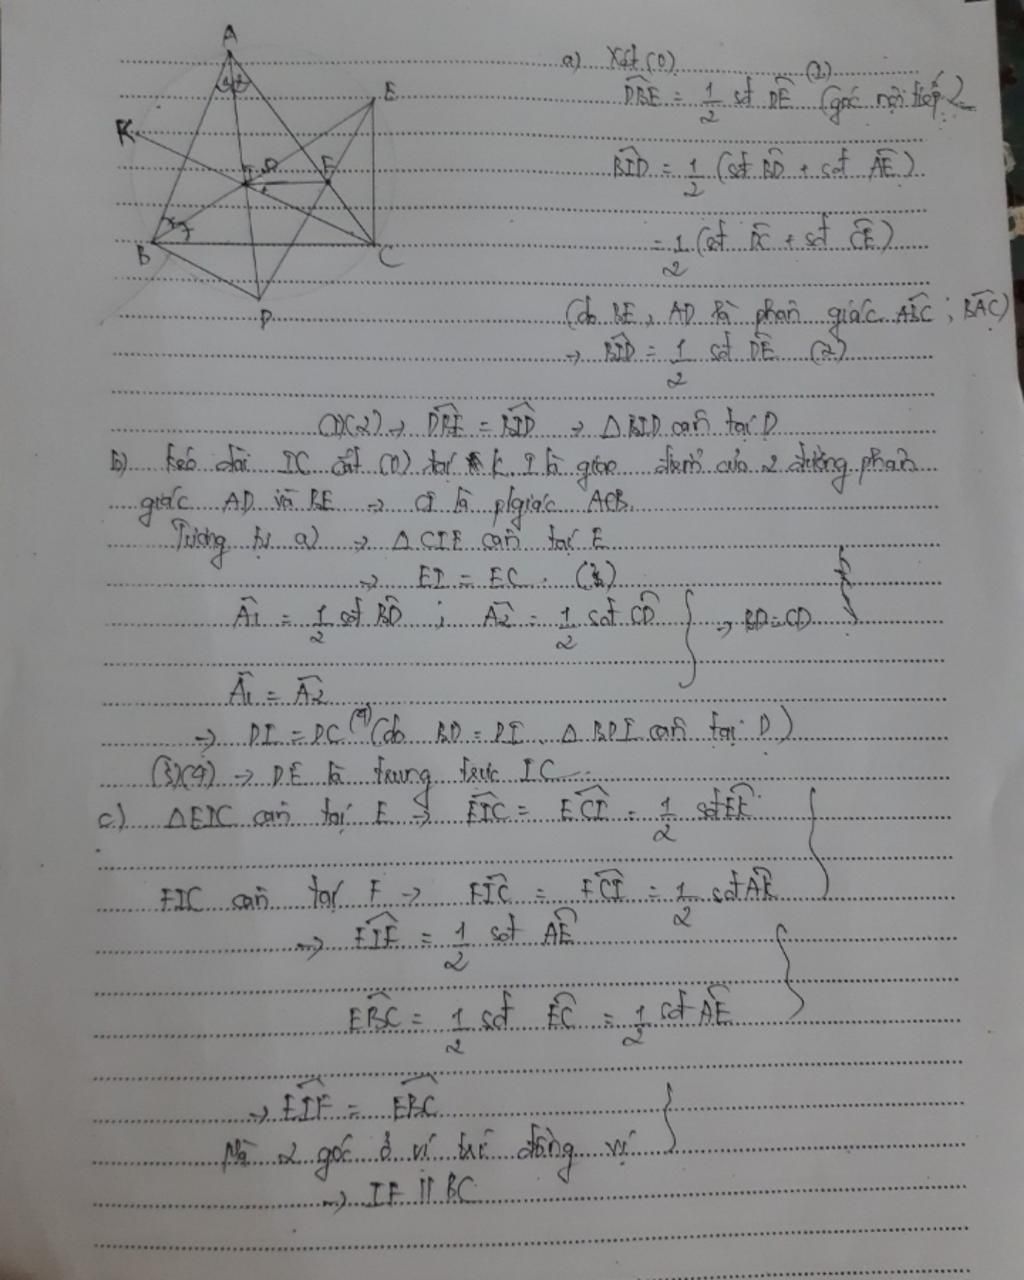 A
E
K
I
F
B
C
D
a) Xét (O)
DBE = 1/2 sđ DE (1) (góc nội tiếp)
BID = 1/2 (sđ BD + sđ AE)
= 1/2 (sđ DC + sđ CE)
(do BE, AD là phân giác ABC ; BAC)
→ BID = 1/2 sđ DE (2)
(1)(2) → DBE = BID → △ BID cân tại D
b) Kéo dài IC cắt (O) tại K. I là giao điểm của 2 đường phân
giác AD và BE → CI là p/giác ACB.
Tương tự a) → △ CIE cân tại E
→ EI = EC. (3)
A1 = 1/2 sđ BD ; A2 = 1/2 sđ CD } → BD = CD
A1 = A2
→ DI = DC (4) (do BD = DI, △ BDI cân tại D)
(3)(4) → DE là trung trực IC
c) △EIC cân tại E → EIC = ECI = 1/2 sđ EK
FIC cân tại F → FIC = FCI = 1/2 sđ AK
→ EIF = 1/2 sđ AE
EBC = 1/2 sđ EC = 1/2 sđ AE
→ EIF = EBC
Mà 2 góc ở vị trí đồng vị
→ IF // BC